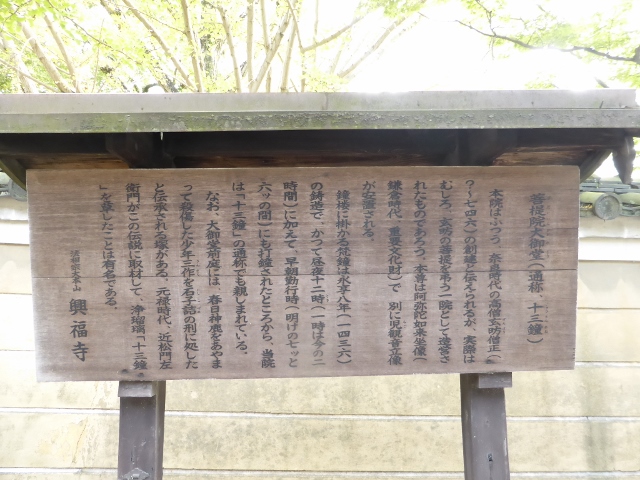 菩提院大御堂（通称 十三鐘）
本院はふつう、奈良時代の高僧玄昉僧正（
？～七四六）の創建と伝えられるが、実際は
むしろ、玄昉の菩提を弔う一院として造営さ
れたものであろう。本尊は阿弥陀如来坐像（
鎌倉時代、重要文化財）で、別に児観音立像
が安置される。
鐘楼に掛かる梵鐘は永享八年（一四三六）
の鋳造で、かつて昼夜十二時（一時は今の二
時間）に加えて、早朝勤行時（明けの七ッと
六ッの間）にも打鐘されたところから、当院
は「十三鐘」の通称でも親しまれている。
なお、大御堂前庭には、春日神鹿をあやま
って殺傷した少年三作を石子詰の刑に処した
と伝承される塚がある。元禄時代、近松門左
衛門がこの伝説に取材して、浄瑠璃「十三鐘
」を草したことは有名である。
法相宗大本山 興福寺